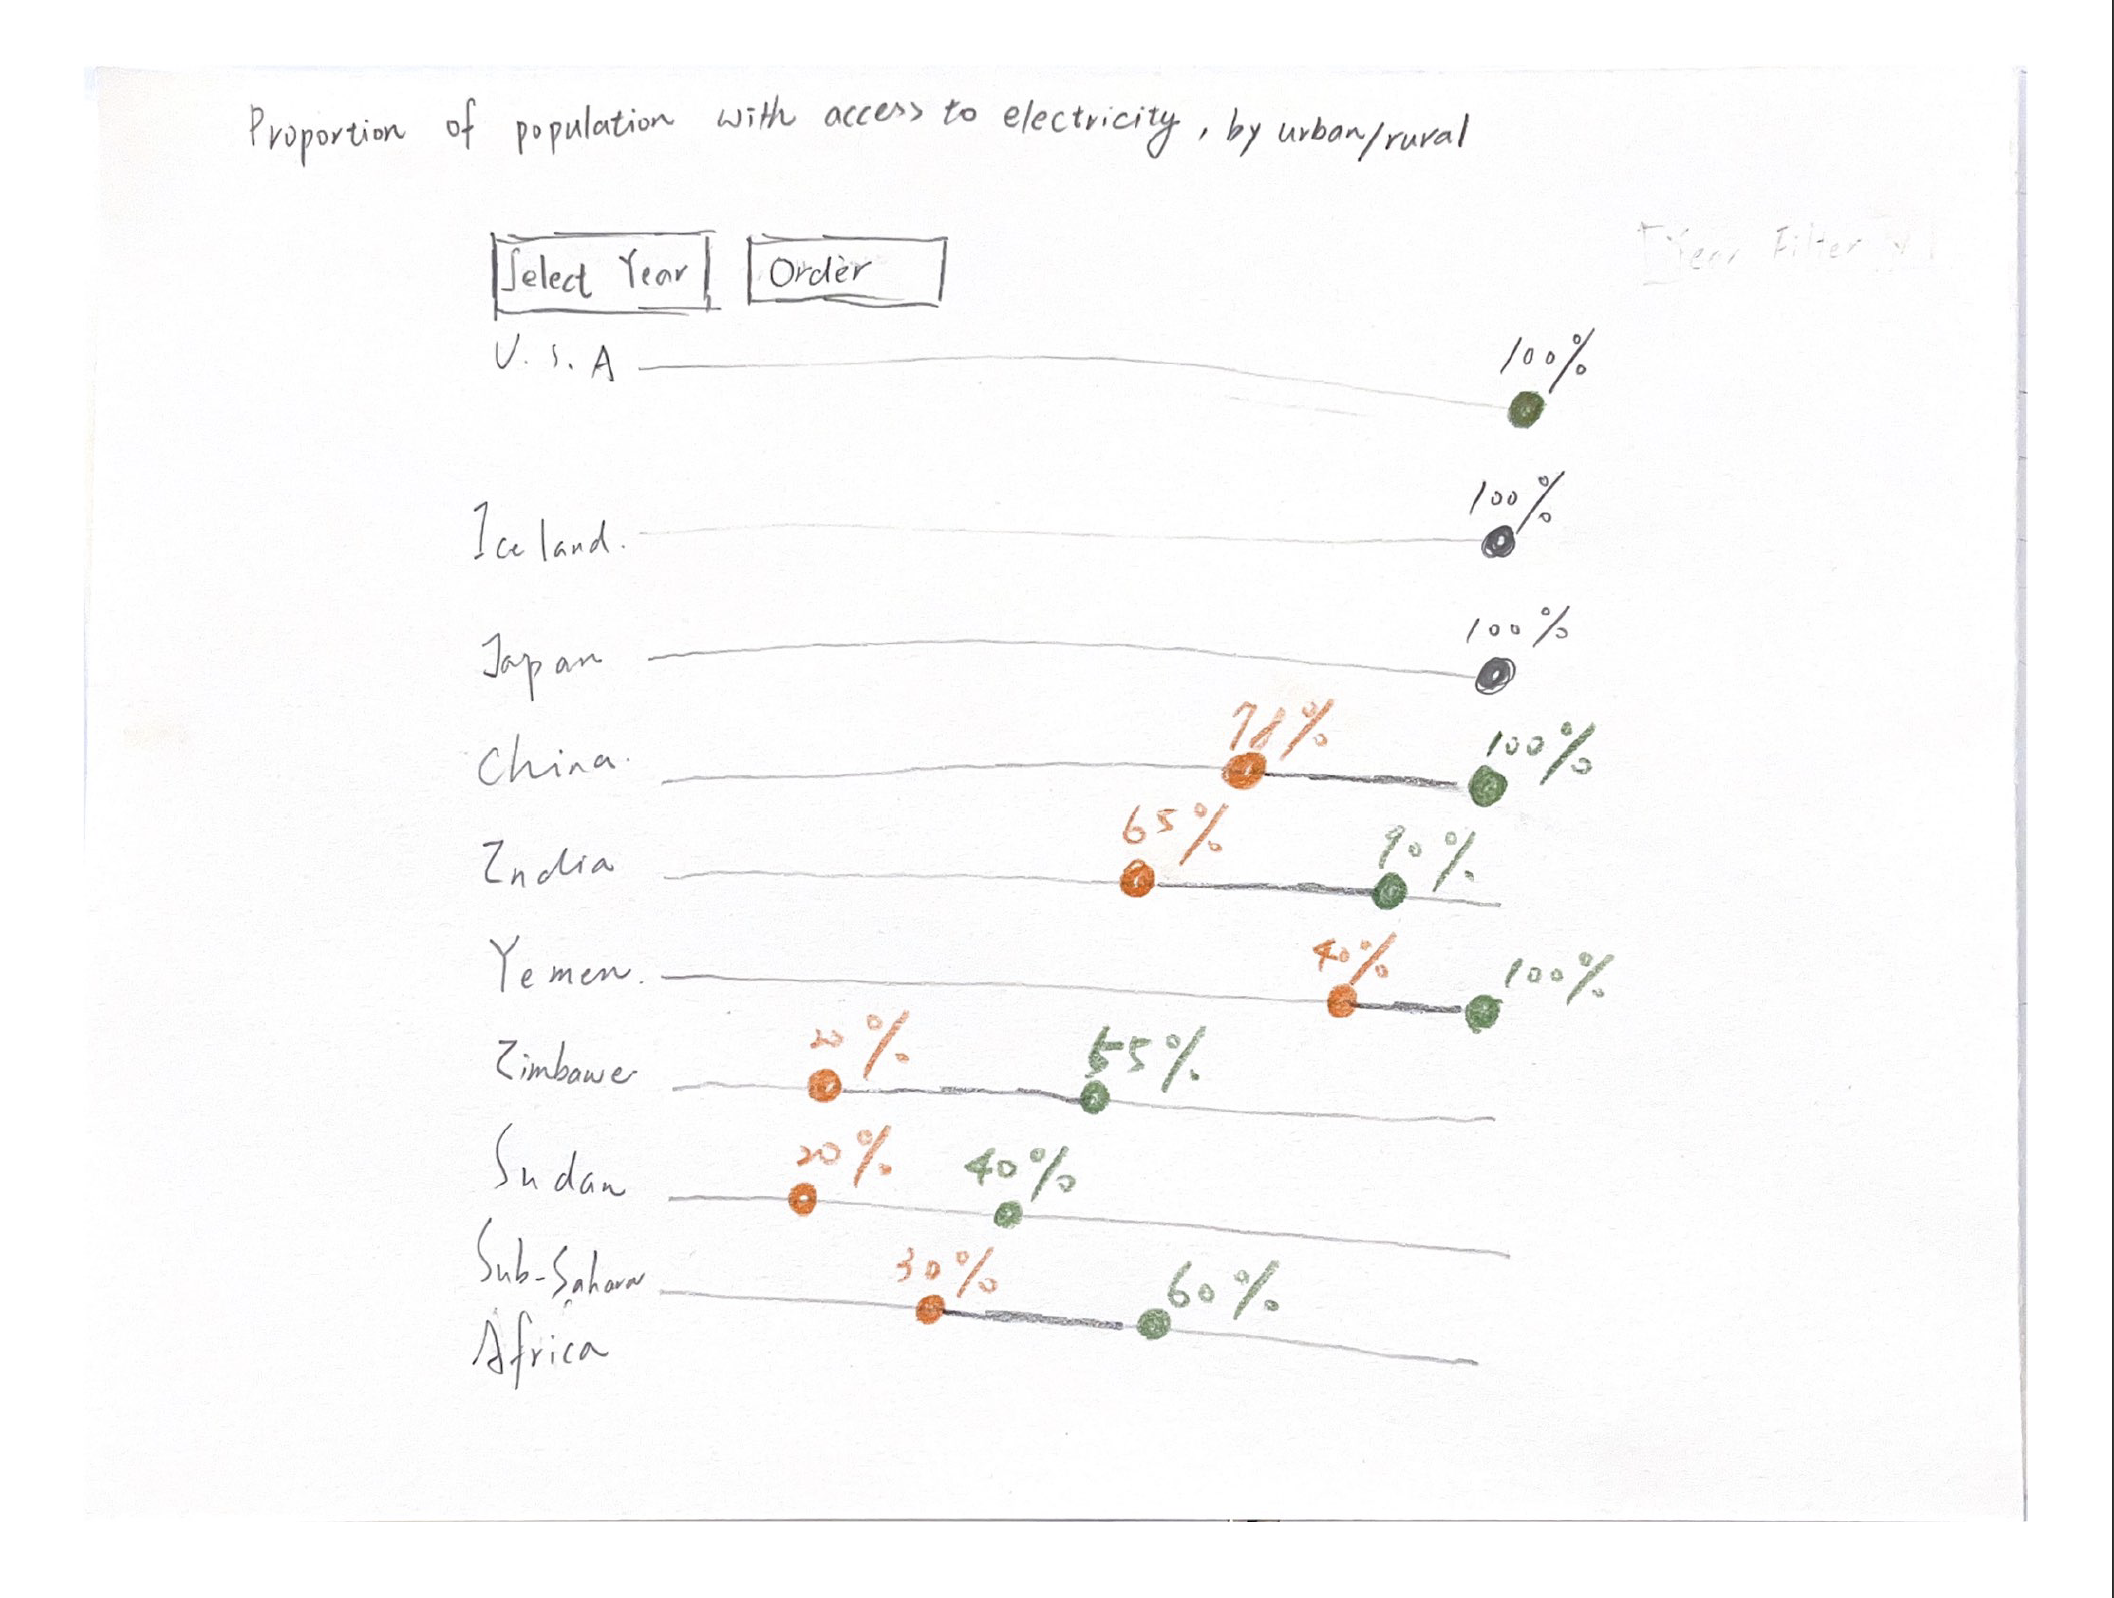 Proportion of population with access to electricity, by urban/rural
Year Filter
Select Year Order
U.S.A 100%
Iceland. 100%
Japan 100%
China. 100%
India 65% 90%
Yemen. 40% 100%
Zimbawe 20% 55%
Sudan 20% 40%
Sub-Saharan 30% 60%
Africa